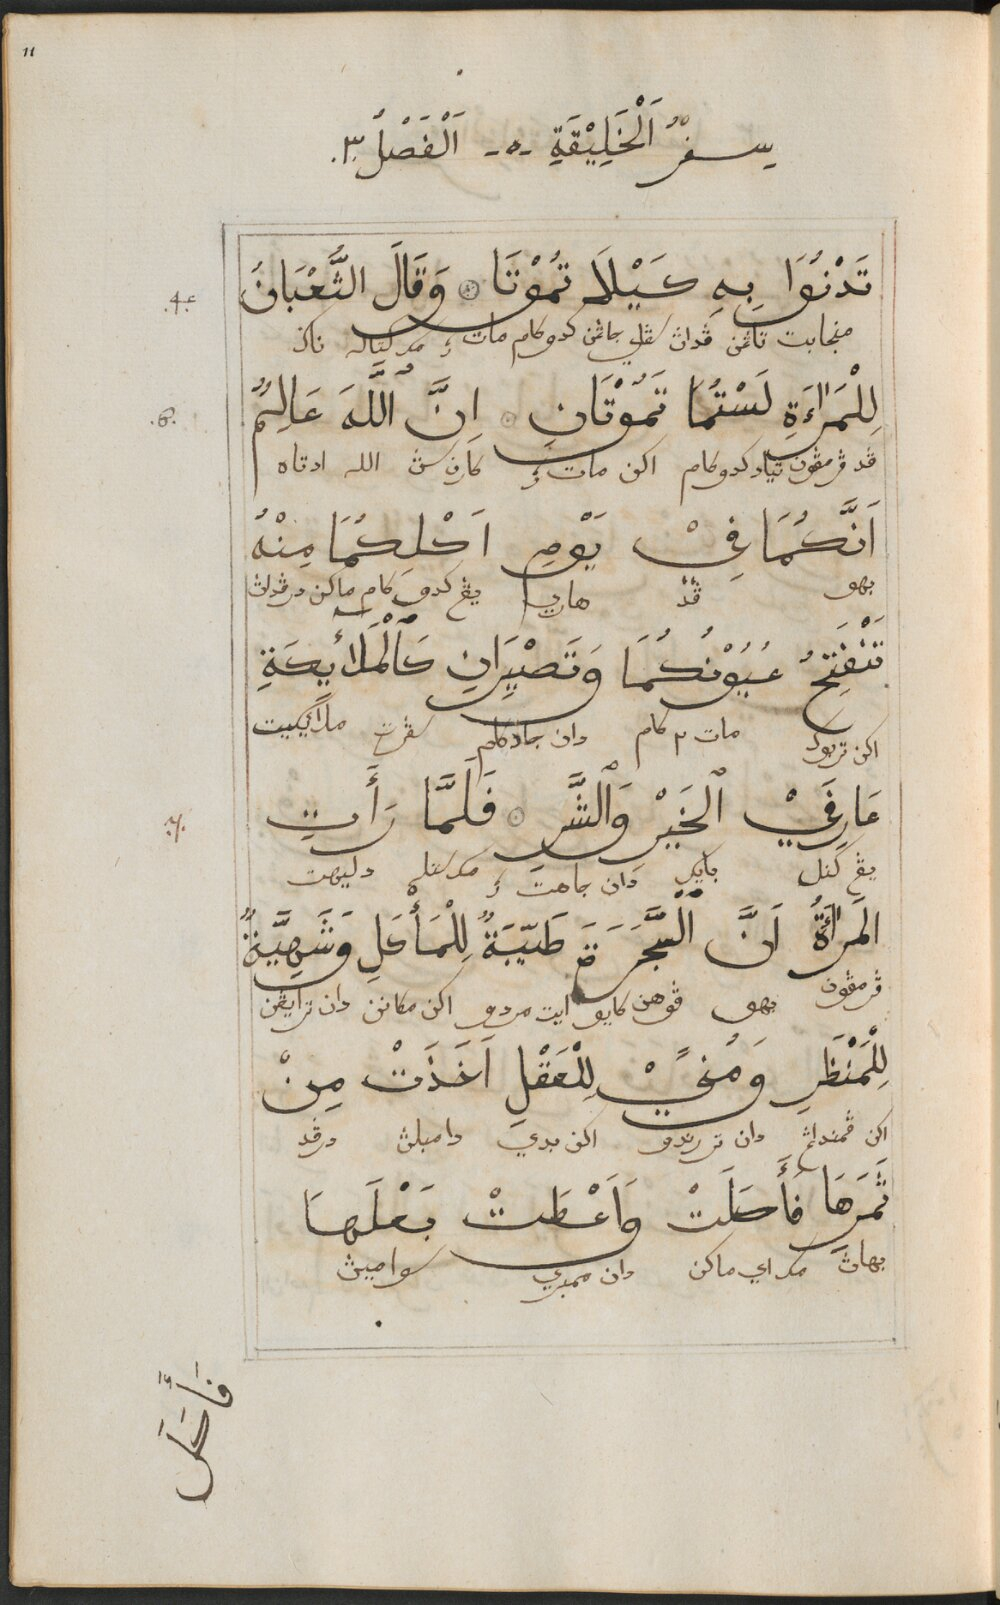 11
سِفْرُ اَلْخَلِيْقَةِ -٥- اَلْفَصْلُ ٣.
تَدْنُوَا بِهِ كَيْلَا تَمُوْتَا ۞ وَقَالَ الثُّعْبَانُ
.4.
منجابت تاڠن قداڽ سڤاي جاڠن كدو كام مات ; مك كتاله ناݢ
لِلْمَرْاَةِ لَسْتُمَا تَمُوْتَانِ ۞ اِنَّ اللّٰهَ عَالِمٌ
.5.
ڤد ڤرمڤون تياد كدو كام اكن مات ; كارن سڠ الله اد تاه
اَنَّكُمَا فِيْ يَوْمِ اَكْلِكُمَا مِنْهُ
بهو ڤد هاري يڠ كدو كام ماكن درڤداڽ
تَنْفَتِحُ عُيُوْنُكُمَا وَتَصْيِرَانِ كَالْمَلَائِكَةِ
اكن تربوك مات ٢ كام دان جاد كام سڤرت ملاييكت
عَارِفَيْ الْخَيْرِ وَالشَّرِ ۞ فَلَمَّا رَأَتِ
.6.
يڠ كنل بايك دان جاهت ; مك ستله دليهت
الْمَرْأَةُ اَنَّ الشَّجَرَةَ طَيِّبَةٌ لِلْمَأْكَلِ وَشَهِيَّةٌ
ڤرمڤون بهو ڤوهن كايو ايت مردو اكن مكانن دان تر ايڠن
لِلْمَنْظَرِ وَمُنًى لِلْعَقْلِ اَخَذَتْ مِنْ
اكن ڤمنداڠ دان تر رندو اكن بدي دامبلڽ درڤد
ثَمَرِهَا فَأَكَلَتْ وَاَعْطَتْ بَعْلَهَا
بهاڽ مك اي ماكن دان ممبري سوامين
فَأَكَلَ